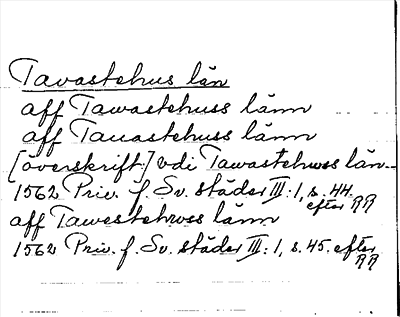 Tavastehus län
aff Tawastehuss länn
aff Tauastehuss länn
[överskrift:] vdi Tawastehwss län
1562 Priv. f. Sv. städer III:1, s. 44
efter RR
aff Tawestehwss länn
1562 Priv. f. Sv. städer III:1, s. 45. efter
RR